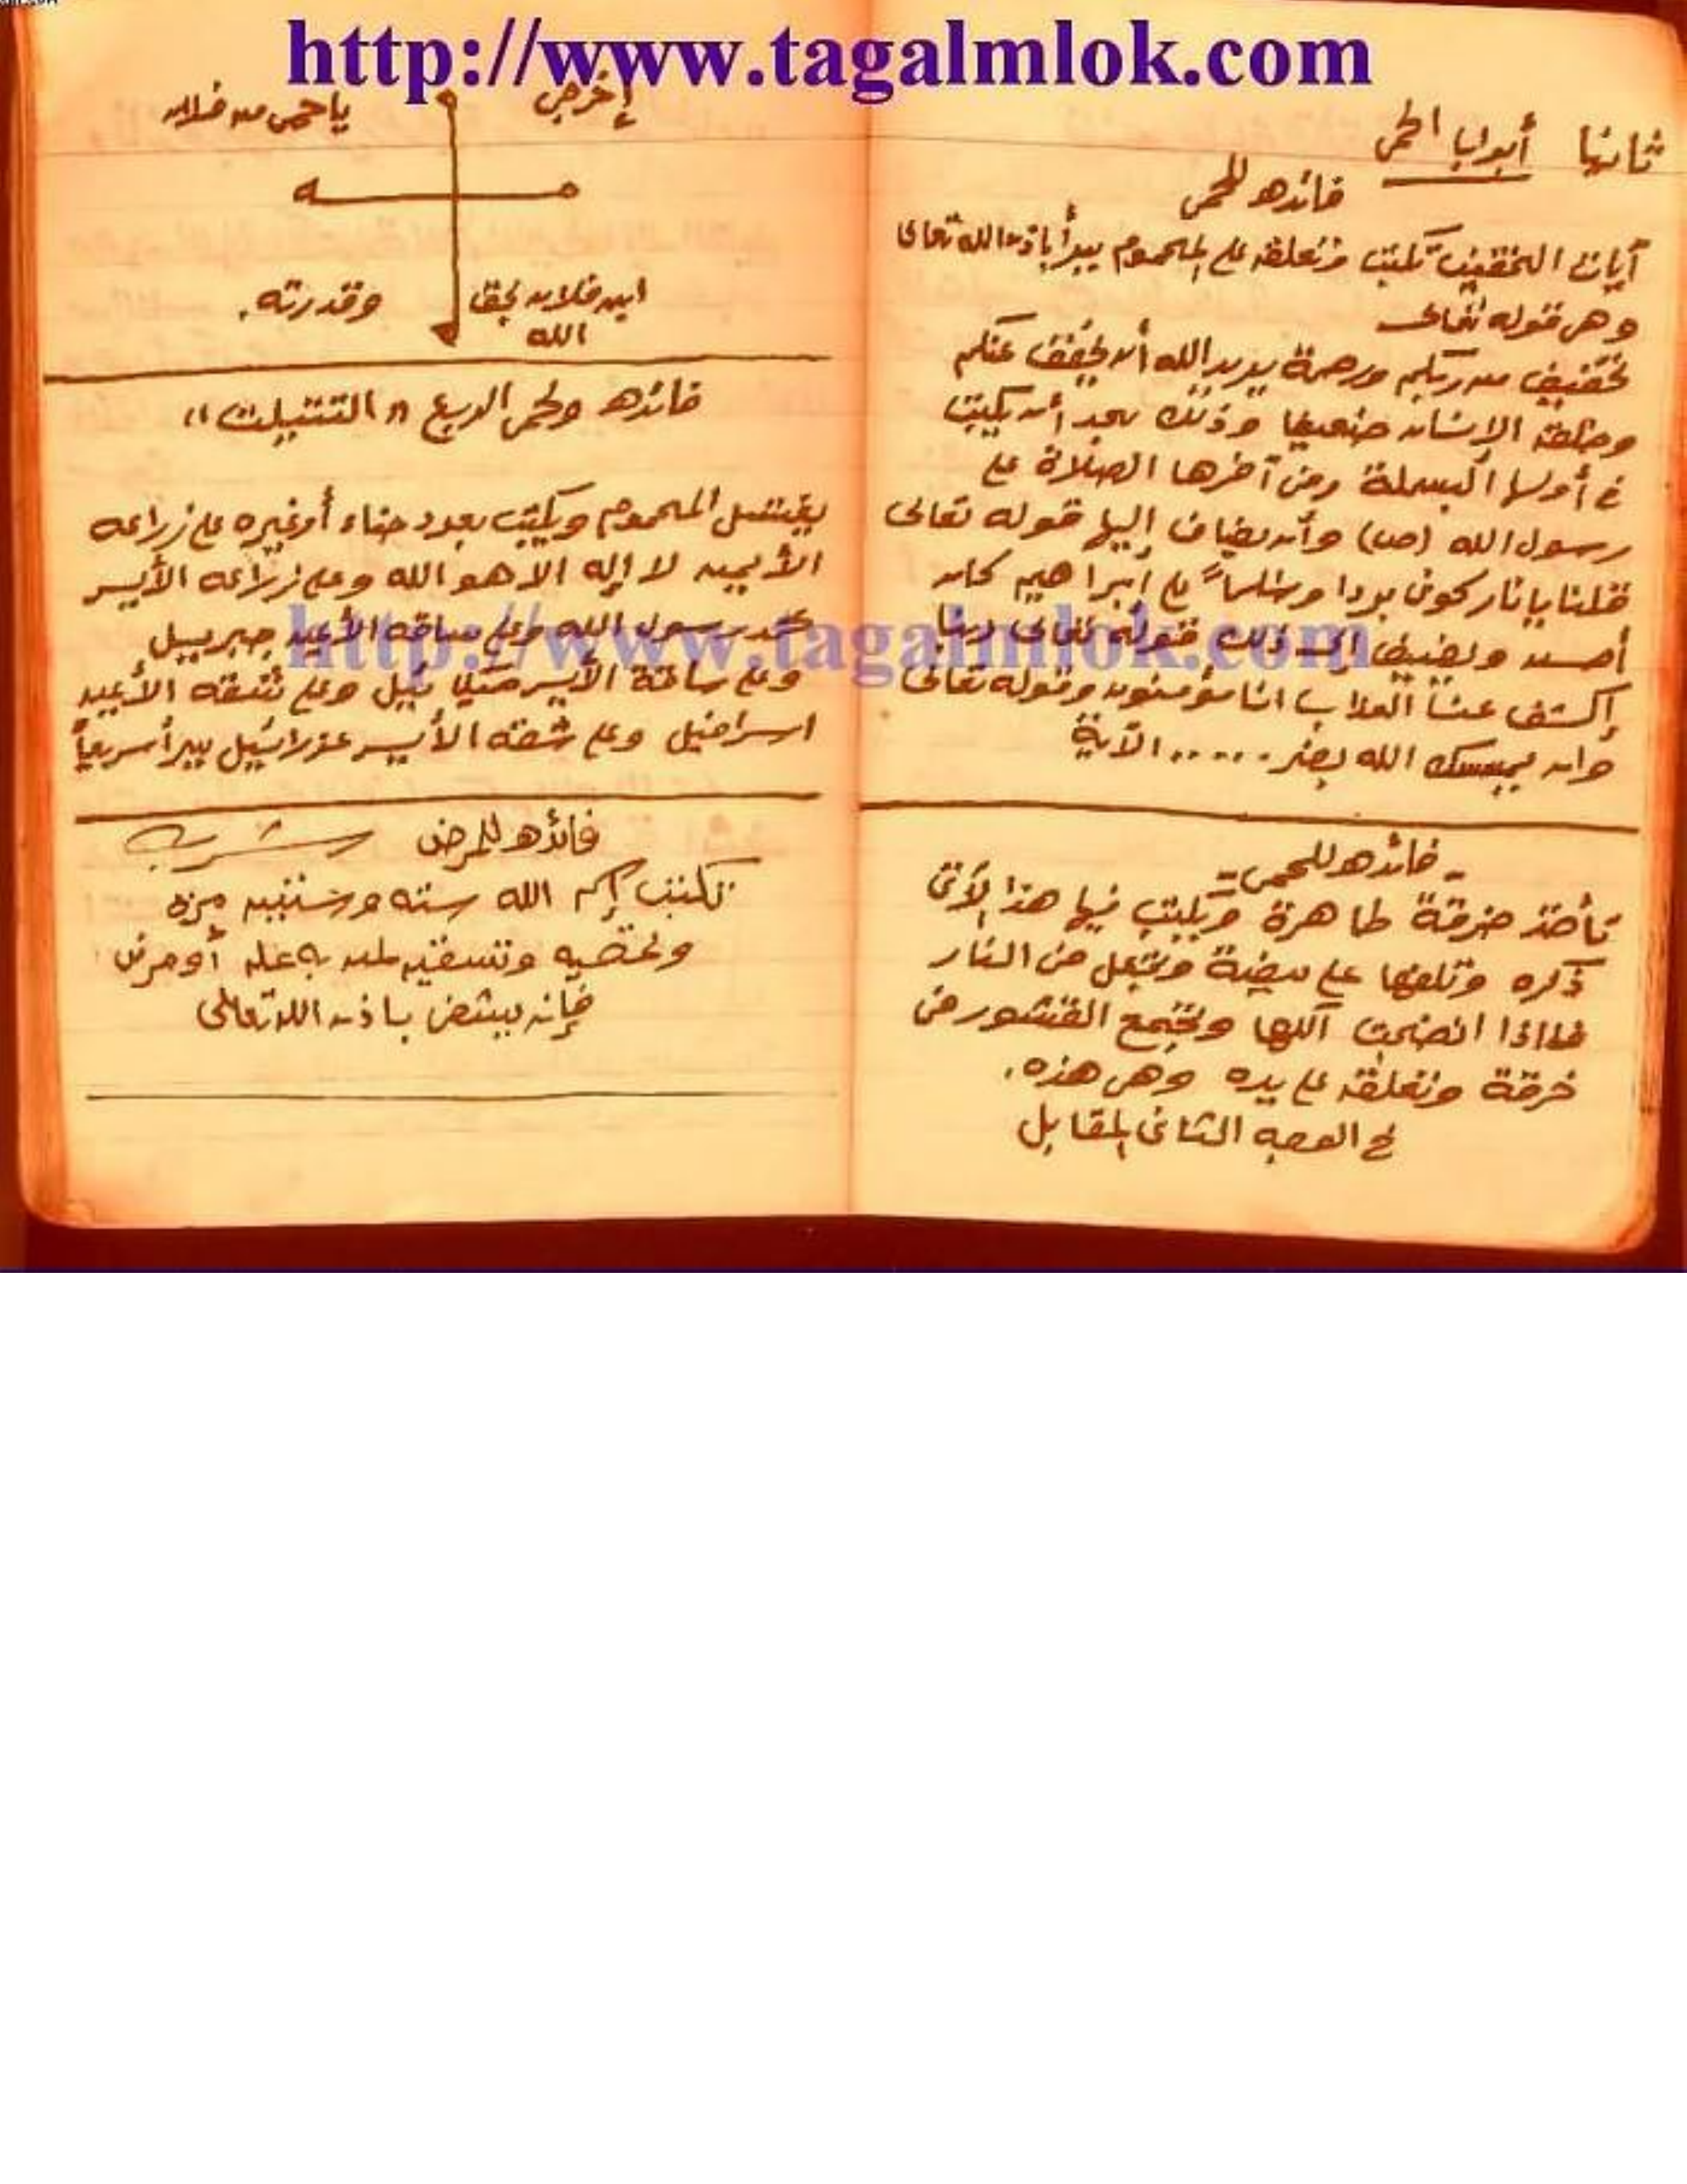 http://www.tagalmlok.com
ثانيا أبواب الحمى
فائده للحمى
آيات التخفيف تكتب وتعلق على المحموم يبرأ باذن الله تعالى
وهى قوله تعالى
تخفيف من ربكم ورحمة يريد الله أن يخفف عنكم
وخلق الإنسان ضعيفا وذلك بعد أن يكتب
فى أولها البسملة وفى آخرها الصلاة على
رسول الله (ص) وأن يضاف إليها قوله تعالى
قلنا يا نار كونى بردا وسلماً على إبراهيم كان
أحسن ويضيف إلى ذلك قوله تعالى ربنا
إكشف عنا العذاب انا مؤمنون وقوله تعالى
وان يمسسك الله بضر ...... الآية
- فائده للحمى -
تأخذ خرقة طاهرة وتكتب فيها هذا الآتى
ذكره وتلفها على بيضة وتجعل فى النار
فاذا انضجت آكلها وتجمع القشور فى
خرقة وتعلق على يده وهى هذه .
فى الوجه الثانى المقابل
إخرجى ياحمى من فلان
ابن فلان بحق وقدرته .
الله
فائده ولحمى الربع " التثليث "
يغتسل المحموم ويكتب بعود حناء أو غيره على زراعه
الأيمن لا إله الا هو الله وعلى زراعه الأيسر
محمد رسول الله وعلى ساقه الأيمن جبرييل
وعلى ساقة الأيسر ميكائيل وعلى شقه الأيمن
اسرافيل وعلى شقه الأيسر عزرائيل يبرأ سريعاً
http://www.tagalmlok.com
فائده للمرض شرب
تكتب إسم الله سته وستين مره
وتمحيه وتسقيه لمن به عله أو مرض
فإنه يشفى باذن الله تعالى